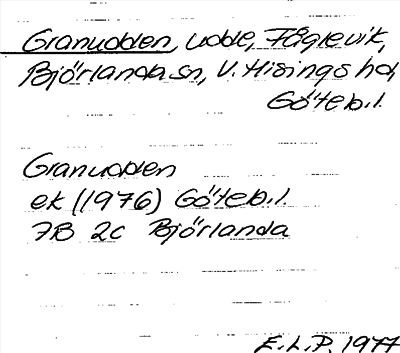 Granudden, udde, Fåglevik,
Björlanda sn, V. Hisings hd,
Göteb.l.
Granudden
ek (1976) Göteb.l.
7B 2c Björlanda
E.L.P. 1977